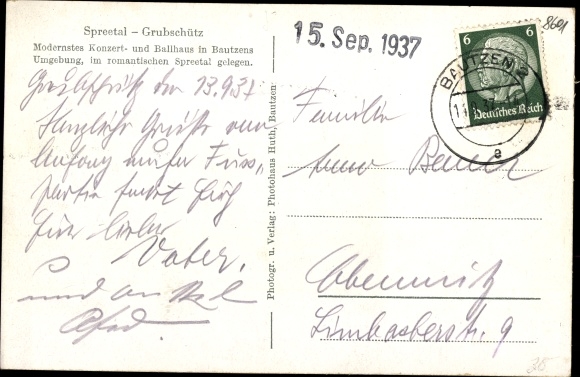 Spreetal – Grubschütz
Modernstes Konzert- und Ballhaus in Bautzens
Umgebung, im romantischen Spreetal gelegen.
Grubschütz den 13.9.37
Herzliche Grüße vom
Anfang unser Fuss-
partie sendet Euch
Euer lieber
Vater.
und Onkel
Photogr. u. Verlag: Photohaus Huth, Bautzen
15. Sep. 1937
8601
6 6
Deutsches Reich
BAUTZEN 2
e
Familie
Chemnitz
Limbacherstr. 9